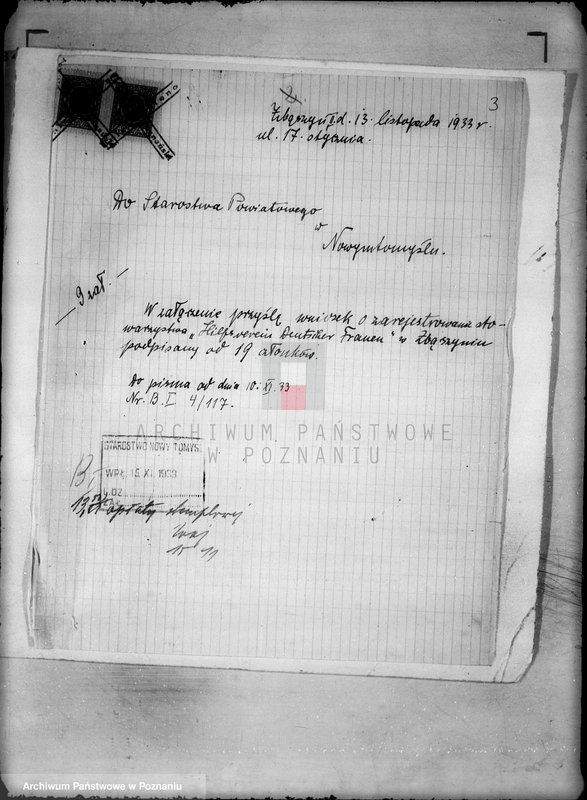 3
Zbąszyń d. 13. listopada 1933 r.
ul. 17. stycznia.
Do Starostwa Powiatowego
w
Nowymtomyślu.
9 zał.
W załączenie przyślę wniosek o zarejestrowanie sto-
warzystwa „Hilfsverein Deutscher Frauen" w Zbąszyniu
podpisany od 19 członków.
Do pisma od dnia 10. XI. 33
Nr. B. I 4/117.
ARCHIWUM PAŃSTWOWE
W POZNANIU
STAROSTWO NOWY TOMYŚL
WPŁ. 15. XI. 1933
L. DZ.
ZAŁ.
B I
opłaty stemplowej
15 11
Archiwum Państwowe w Poznaniu